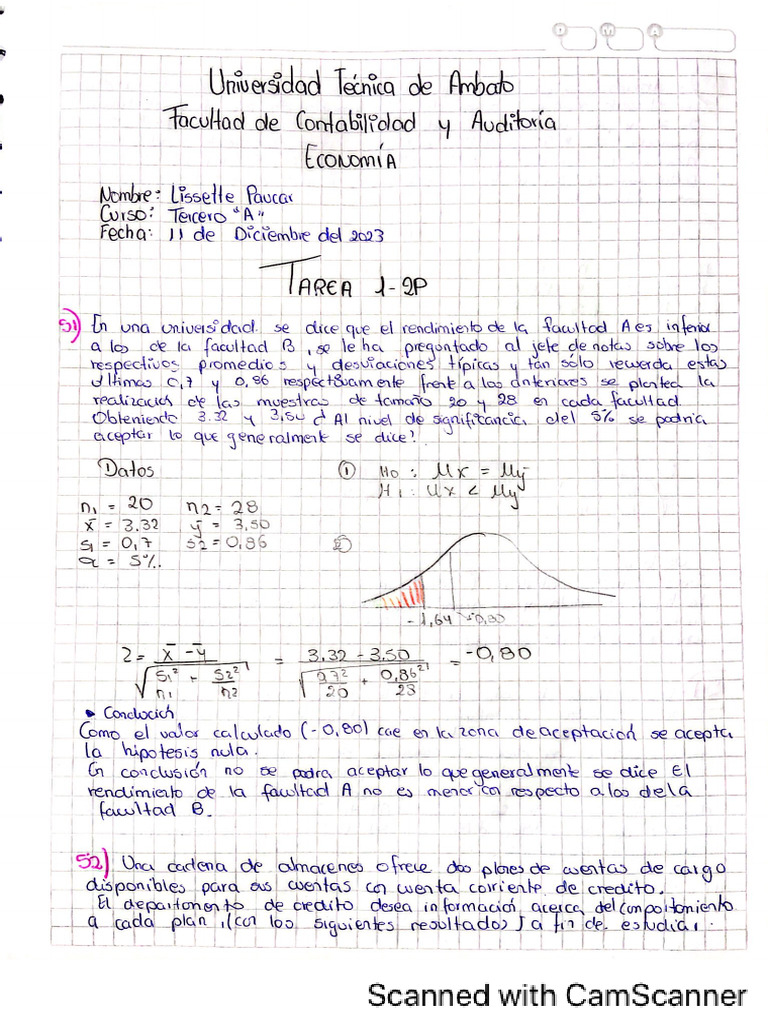 D M A
Universidad Técnica de Ambato
Facultad de Contabilidad y Auditoría
Economía
Nombre: Lissette Paucar
Curso: Tercero "A"
Fecha: 11 de Diciembre del 2023
Tarea 1-2P
51) En una universidad se dice que el rendimiento de la facultad A es inferior
a los de la facultad B, se le ha preguntado al jefe de notas sobre los
respectivos promedios y desviaciones típicas y tan sólo recuerda estas
ultimas 0,7 y 0,86 respectivamente frente a los anteriores se plantea la
realización de las muestras de tamaño 20 y 28 en cada facultad.
Obteniendo 3.32 y 3,50 ¿ Al nivel de significancia del 5% se podria
aceptar lo que generalmente se dice?
Datos
n1 = 20 n2 = 28
x̄ = 3.32 ȳ = 3,50
s1 = 0,7 s2 = 0,86
α = 5%.
① Ho : Mx = My
H1 : Mx < My
②
-1,64 -0,80
Z = x̄ - ȳ / √(s1²/n1 + s2²/n2) = 3.32 - 3.50 / √(0,7²/20 + 0,86²/28) = -0,80
• Conclución
Como el valor calculado (-0,80) cae en la zona de aceptación se acepta
la hipotesis nula.
En conclusión no se podra aceptar lo que generalmente se dice El
rendimiento de la facultad A no es menor con respecto a los de la
facultad B.
52) Una cadena de almacenes ofrece dos planes de cuentas de cargo
disponibles para sus cuentas con cuenta corriente de credito.
El departamento de credito desea información acerca del comportamiento
a cada plan, (con los siguientes resultados) a fin de estudiar
Scanned with CamScanner